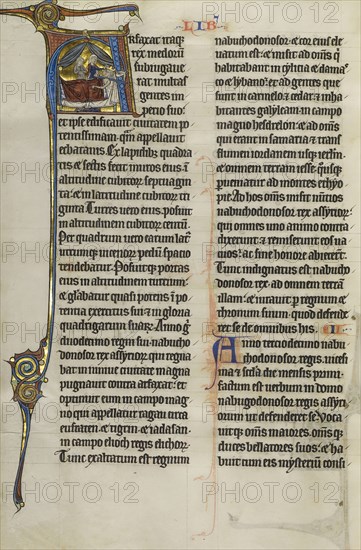 LIBʳ
Arfaxat itaqʒ
rex medorũ
subiugaue
rat multas
gentes im
perio suo.
et ipse edificauit ciuitatem po
tentissimam. qm̃ appellauit
ecbatanis. Ex lapidibus quadra
tis et sectis fecit muros eius in
altitudine cubitorum septuagin
ta. et in latitudine cubitorum tri
ginta. Turres uero eius posuit
in altitudinem cubitorum centũ.
Per quadrum uero earum latus
utrumqʒ uicenorum pedũ spacio
tendebatur. Posuitqʒ portas
eius in altitudinem turrium.
et gloriabatur quasi potens in po
tentia exercitus sui. et in gloria
quadrigarum suarum. Anno igitur
duodecimo regni sui. nabucho
donosor rex assyriorum qui regna
bat in niniue ciuitate magna
pugnauit contra arfaxat. et
optinuit eum in campo mag
no qui appellatur ragau circa
eufraten. et tigrin. et iadasan.
in campo erioch regis elichorum.
Tunc exaltatum est regnum
nabuchodonosor. et cor eius ele
uatum est. et misit ad oms̃ qui
habitabant in cylicia et dama
co et lybano. et ad gentes que
sunt in carmelo et cedar. et inha
bitantes galyleam in campo
magno hesdrelon. et ad oms̃
qui erant in samaria et trans
flumen iordanem usqʒ ierlm̃.
et omnem terram iesse. quousqʒ
perueniatur ad montes ethyo
pie. Ad hos oms̃ misit nuntios
nabuchodonosor rex assyriorum.
qui omnes uno animo contra
dixerunt. et remiserunt eos ua
cuos. ac sine honore abiecerunt.
Tunc indignatus est nabucho
donosor rex ad omnem terram
illam. et iurauit per regnum et
thronum suum. quod defende
ret se de omnibus his. II
Anno terciodecimo nabu
chodonosor regis. uicesima
et secunda die mensis primi
factum est uerbum in domo
nabugodonosor regis assyri
orum ut defenderet se. Voca
uitqʒ omnes maiores. oms̃qʒ
duces bellatores suos. et ha
buit cum eis mysterium consi